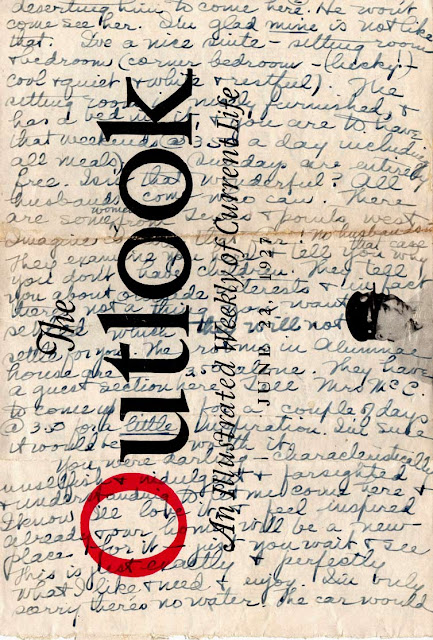 deserting him to come here. He won't
come see her. I'm glad mine is not like
that. I've a nice suite - sitting room
& bedroom (corner bedroom - (lucky!) -
cool & quiet & white & restful). The
sitting room nicely furnished, &
has a bed in it are to have
that weekends @ 3.50 a day including
all meals) (Sundays are entirely
free. Isn't that wonderful? All
husbands come who can. There
are some women from Texas & points west
Imagine no husbands in
that case
They examine you tell you why
you don't have children. They tell
you about outside interests & in fact
there's not a thing you want
which will not
settle for you. The rooms in Alumnae
house are 3.50 alone. They have
a guest section here I see Mrs. McC.
to come up for a couple of days
@ 3.50 for a little inspiration. I'm sure
it would be worth it.
You were darling - characteristically
unselfish & indulgent & farsighted
& understanding to let me come here &
I know I'll love it. I feel inspired
already & our home will be a new
place for it - just you wait & see
This is just exactly & perfectly
what I like & need & enjoy. I'm only
sorry there's no water. The car would
The
Outlook
An Illustrated Weekly of Current Life
JUNE 22, 1927